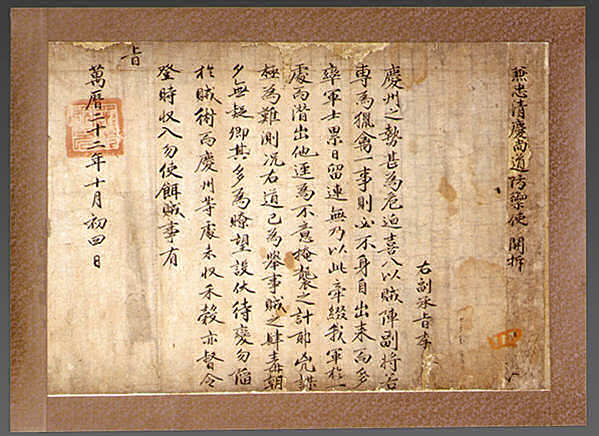 兼忠清慶尚道防禦使 開拆
右副承旨李
慶州之勢甚為危迫喜八以賊陣副將若
專為獵禽一事則必不身自出来而多
率軍士累日留連無乃以此牽綴我軍於一
處而潛出他逕為不意掩襲之計耶兇謀
極為難測况右道已為舉事賊之肆毒朝
夕無疑卿其多為瞭望設伏待變勿陷
於賊術而慶州等處未收禾穀亦督令
登時收入勿使餌賊事有
旨
萬曆二十二年十月初四日